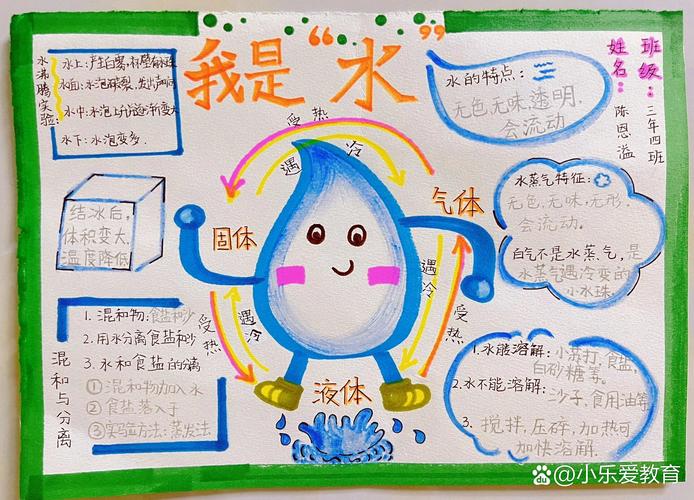 我是“水”
班级：三年四班
姓名：陈恩溢
水沸腾实验：
水上：产生白雾，杯壁有水珠
水面：水泡破裂，发出声响
水中：水泡上升逐渐变大
水下：水泡变多.
水的特点：
无色，无味，透明，
会流动
受热
遇冷
固体
气体
结冰后，
体积变大，
温度降低
水蒸气特征：
无色，无味，无形，
会流动。
白气不是水蒸气，是
水蒸气遇冷变的
小水珠
受热
遇冷
遇冷
受热
液体
混和与分离
1. 混和物：食盐和沙
2. 用水分离食盐和沙
3. 水和食盐的分离
①混和物加入水
②食盐落入于
③实验方法：蒸发法
1. 水能溶解：小苏打，食盐，
白砂糖等。
2. 水不能溶解：沙子，食用油等
3. 搅拌，压碎，加热可
加快溶解.
Bai du 百科 @小乐爱教育